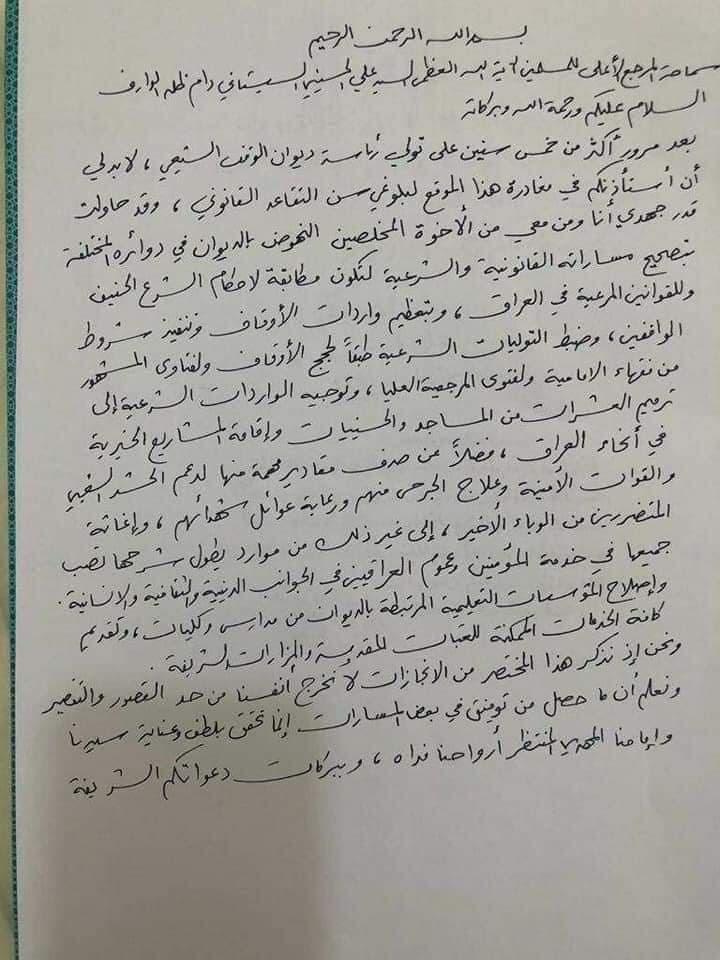 بسم الله الرحمن الرحيم
سماحة المرجع الأعلى للمسلمين آية الله العظمى السيد علي الحسيني السيستاني دام ظله الوارف
السلام عليكم ورحمة الله وبركاته
بعد مرور أكثر من خمس سنين على تولي رئاسة ديوان الوقف الشيعي ، لابد لي
أن أستأذنكم في مغادرة هذا الموقع لبلوغي سن التقاعد القانوني ، وقد حاولت
قدر جهدي أنا ومن معي من الأخوة المخلصين النهوض بالديوان في دوائره المختلفة
بتصحيح مساراته القانونية والشرعية لتكون مطابقة لاحكام الشرع الحنيف
وللقوانين المرعية في العراق ، وبتعظيم واردات الأوقاف وتنفيذ شروط
الواقفين ، وضبط التوليات الشرعية طبقاً لحجج الأوقاف ولفتاوى المشهور
من فقهاء الامامية ولفتوى المرجعية العليا ، وتوجيه الواردات الشرعية إلى
ترميم العشرات من المساجد والحسينيات وإقامة المشاريع الخيرية
في أنحاء العراق ، فضلاً عن صرف مقادير مهمة منها لدعم الحشد الشعبي
والقوات الأمنية وعلاج الجرحى منهم ورعاية عوائل شهدائهم ، وإغاثة
المتضررين من الوباء الأخير ، إلى غير ذلك من موارد يطول شرحها تصب
جميعها في خدمة المؤمنين وعموم العراقيين في الجوانب الدينية والثقافية والانسانية .
وإصلاح المؤسسات التعليمية المرتبطة بالديوان من مدارس وكليات ، وتقديم
كافة الخدمات الممكنة للعتبات المقدسة والمزارات الشريفة .
ونحن إذ نذكر هذا المختصر من الانجازات لا نخرج انفسنا من حد القصور والتقصير
ونعلم أن ما حصل من توفيق في بعض المسارات إنما تحقق بلطف وعناية سيدنا
وإمامنا المهدي المنتظر أرواحنا فداه ، وببركات دعواتكم الشريفة